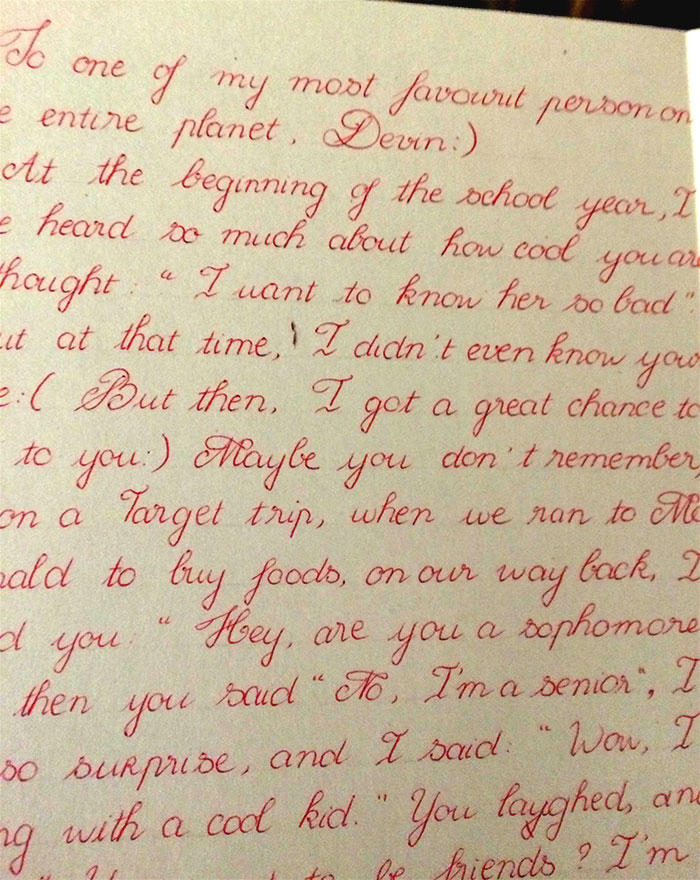 To one of my most favourit person on
e entire planet, Devin:)
At the beginning of the school year, I
e heard so much about how cool you are
hought: “I want to know her so bad”.
ut at that time, I didn't even know you
e:( But then, I got a great chance to
to you:) Maybe you don't remember,
on a Target trip, when we ran to Mc
nald to buy foods, on our way back, I
d you: “Hey, are you a sophomore
then you said “No, I'm a senior”, I
so surprise, and I said: “Wow, I
ng with a cool kid.” You layghed, and
to be friends? I'm